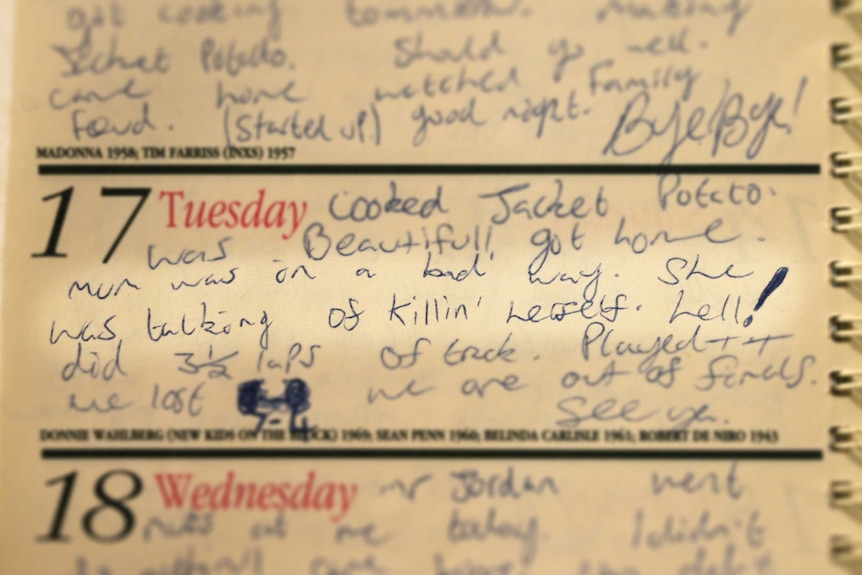 got cooking tommorow. Making
Jacket Potato. Should go well.
came home watched Family
Feud. (Started up!) good night. Bye Bye!
MADONNA 1958; TIM FARRISS (INXS) 1957
17 Tuesday Cooked Jacket Potato.
was Beautiful! got home.
mum was in a bad way. She
was talking of killin' herself. hell!
did 3½ laps of track. Played ++
we lost 7-4 we are out of finals.
See ya.
DONNIE WAHLBERG (NEW KIDS ON THE BLOCK) 1969; SEAN PENN 1960; BELINDA CARLISLE 1961; ROBERT DE NIRO 1943
18 Wednesday mr Jordan went
nuts at me today. I didn't